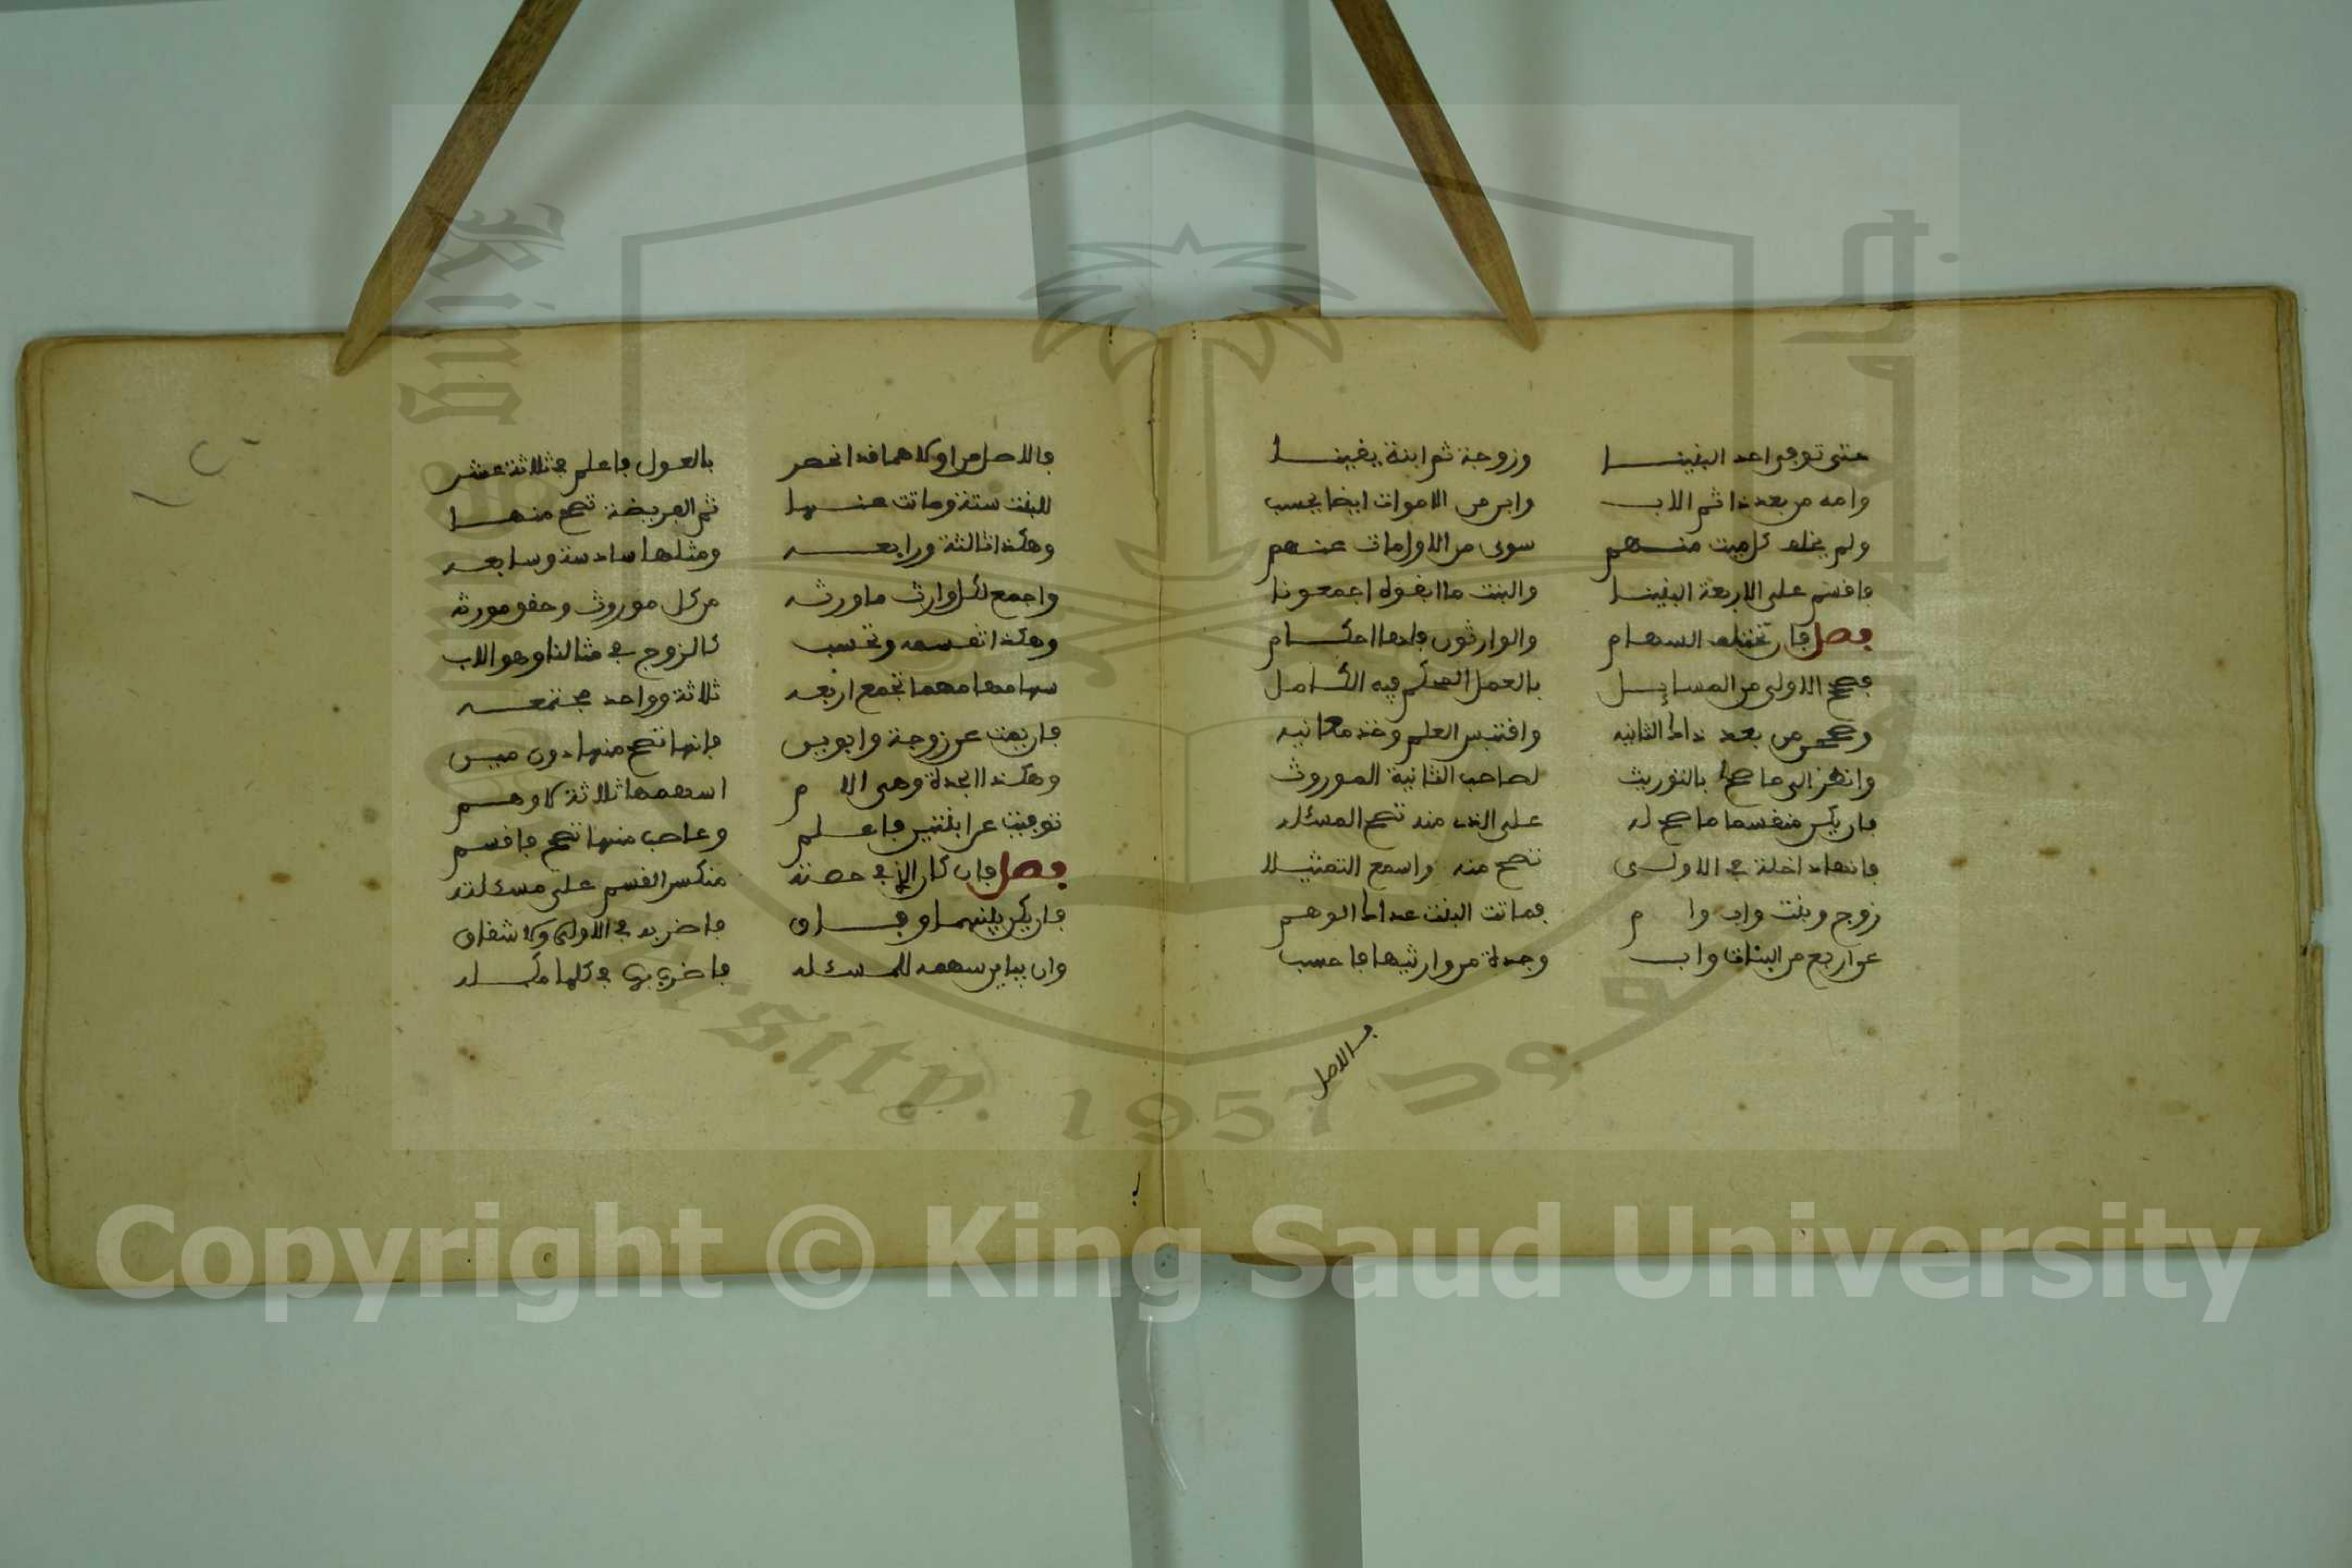 حتى توفي احد البنينا وزوجة ثم ابنة يقينا
وامه من بعد ذا ثم الاب وابن من الاموات ايضا يحسب
ولم يخلف كل ميت منهم سوى من الاولى مات عنهم
فاقسم على الاربعة البنينا والبنت ما ابقوه اجمعونا
فصل فان تختلف السهام والوارثون فلها احكام
فصحح الاولى من المسايل بالعمل المحكم فيه الكامل
وصححن من بعد ذاك الثانيه واقتبس العلم وخذ معانيه
وانظر الى ما صح بالتوريث لصاحب الثانية الموروث
فان يكن منقسما ما صح له على الذي منه تصح المسئله
فانها داخلة في الاولى تصح منه واسمع التمثيلا
زوج وبنت واب وام فماتت البنت عداك الوهم
عن اربع من البنات واب وجدة من وارثيها فاحسب
فالاصل
فالاصل من اولاهما قد انحصر بالعول فاعلم في ثلاثة عشر
للبنت ستة وماتت عنها ثم الفريضة تصح منها
وهكذا ثالثة ورابعه ومثلها سادسة وسابعه
واجمع لكل وارث ما ورثه من كل موروث وحقق مورثه
وهكذا تقسمه وتحسب كالزوج في مثالنا وهو الاب
سهامها مهما تجمع اربعه ثلاثة وواحد مجتمعه
فان يمت عن زوجة وابوين فانها تصح منها دون مين
وهكذا الجدة وهي الام اسهمها ثلاثة لا وهم
توفيت عن ابنتين فاعلم وعاصب منها تصح فاقسم
فصل فان كان الذي في حصته منكسر القسم على مسئلته
فان يكن بينهما وفاق فاضربه في الاولى ولا شقاق
وان يباين سهمه للمسئله فاضرب بها في كلها مكمله
King Saud University. 1957
Copyright © King Saud University